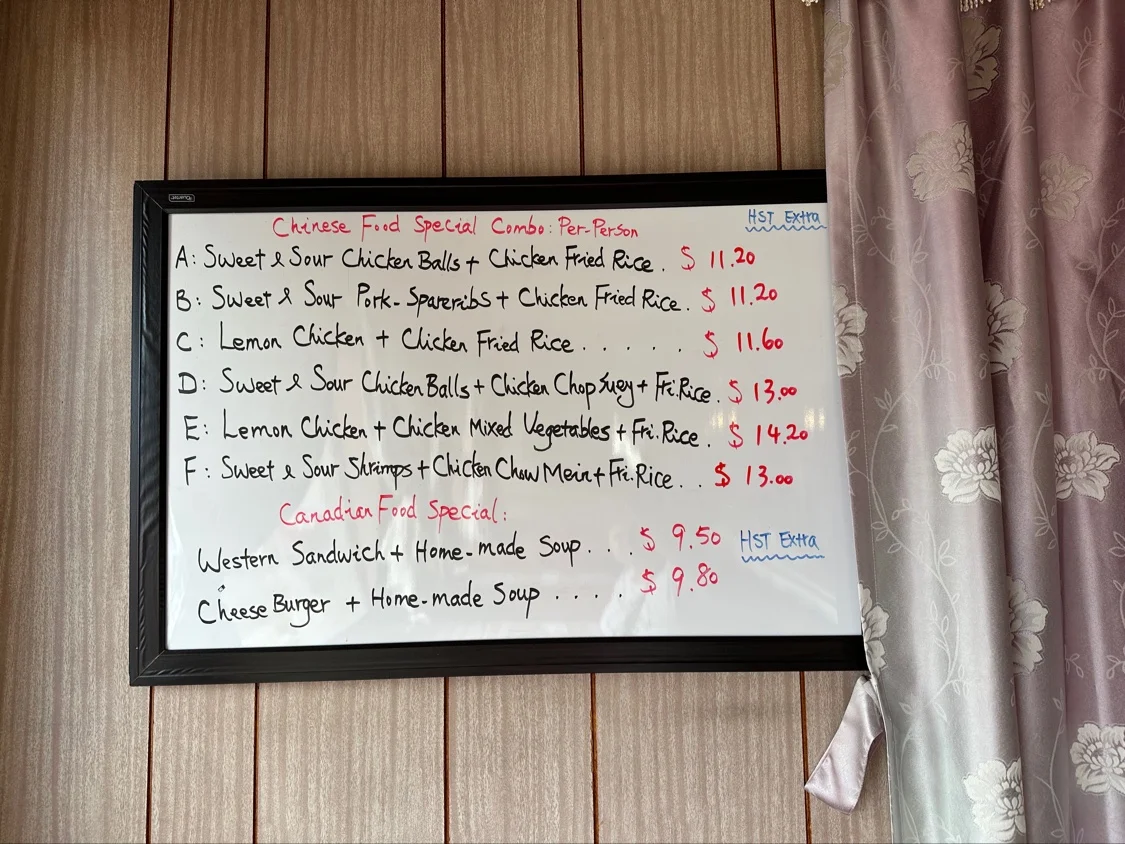 Chinese Food Special Combo: Per-Person HST Extra
A: Sweet & Sour Chicken Balls + Chicken Fried Rice. $ 11.20
B: Sweet & Sour Pork-Spareribs + Chicken Fried Rice. $ 11.20
C: Lemon Chicken + Chicken Fried Rice . . . . . $ 11.60
D: Sweet & Sour Chicken Balls + Chicken Chop Suey + Fri.Rice. $ 13.00
E: Lemon Chicken + Chicken Mixed Vegetables + Fri.Rice. $ 14.20
F: Sweet & Sour Shrimps + Chicken Chow Mein + Fri.Rice. . $ 13.00
Canadian Food Special:
Western Sandwich + Home-made Soup. . . $ 9.50 HST Extra
Cheese Burger + Home-made Soup . . . . $ 9.80